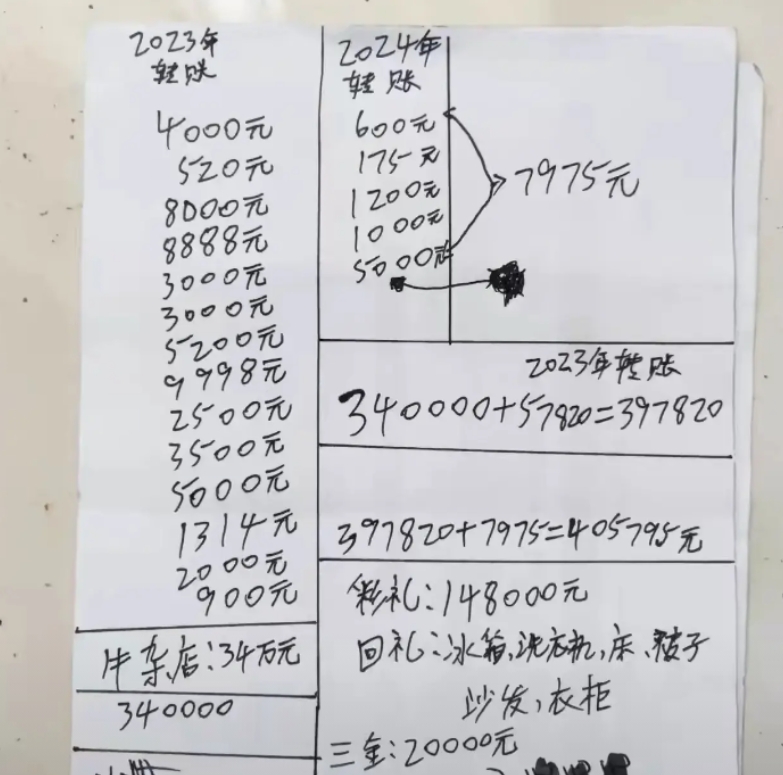 2023年
转账
4000元
520元
8000元
8888元
3000元
3000元
5200元
9998元
2500元
3500元
5000元
1314元
2000元
900元
牛杂店:34万元
340000
2024年
转账
600元
175元
1200元
1000元
5000元
7975元
2023年转账
340000+57820=397820
397820+7975=405795元
彩礼:148000元
回礼:冰箱,洗衣机,床、被子
沙发,衣柜
三金:20000元